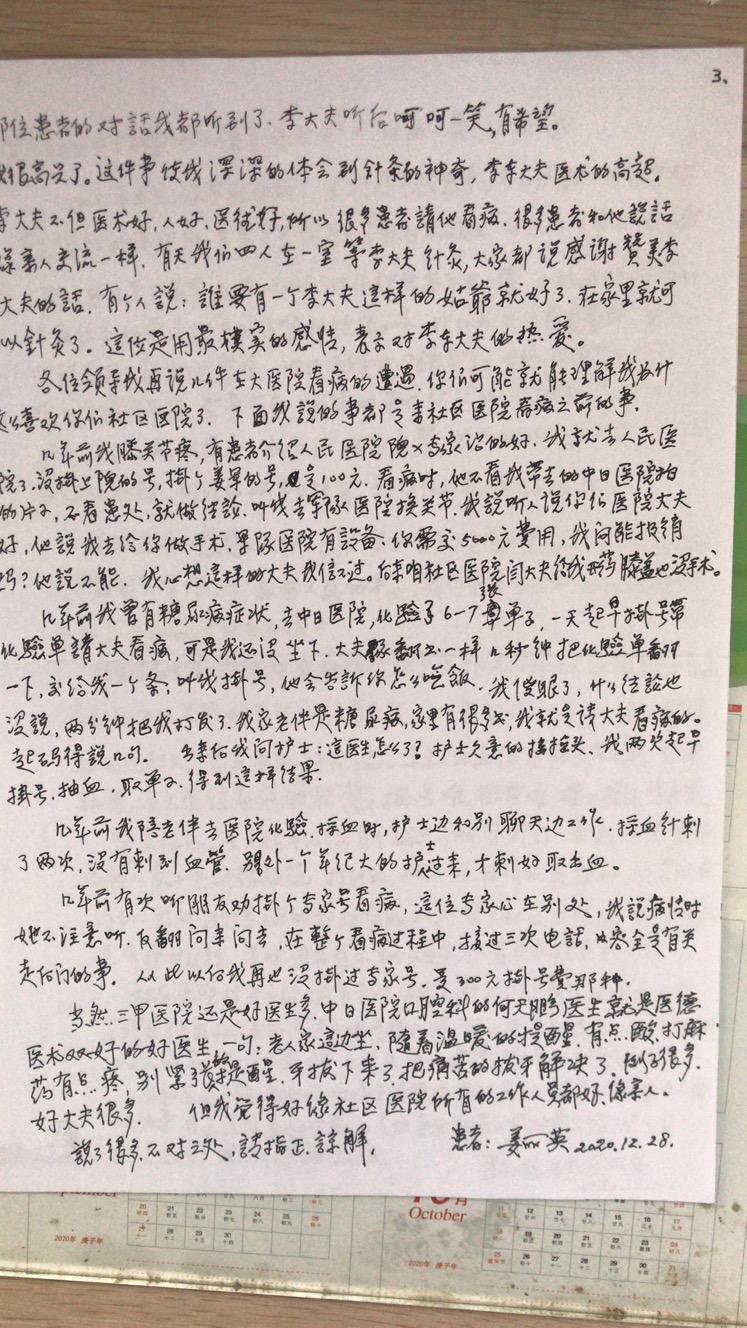 3、
那位患者的对話我都听到了．李大夫听后呵呵一笑，有希望。
很高兴了。这件事使我深深的体会到針灸的神奇，李东大夫医术的高超。
李大夫不但医术好，人好，医德好，所以很多患者請他看病．很多患者和他說話
像亲人交流一样．有天我们四人在一室等李大夫針灸，大家都说感谢贊美李
大夫的話．有个人説：誰要有一个李大夫这样的姑爺就好了．在家里就可
以針灸了。這位是用最樸实的感情，表示对李东大夫的热爱。
各位领导我再说几件在大医院看病的遭遇．你们可能就能理解我为什
这么喜欢你们社区医院了．下面我說的事都是来社区医院看病之前的事．
几年前我膝关节疼，有患者介绍人民医院院×专家治的好．我就去人民医
院了．没掛上院的号，掛个姜軍的号，是100元．看病时，他不看我带去的中日医院拍
的片子，不看患处，就做结論．叫我去军队医院換关节．我説听人说你们医院大夫
好，他說我去给你做手术．軍隊医院有設备．你需交5000元費用，我问能报销
吗？他説不能．我心想这样的大夫我信不过。后来咱社区医院闫大夫给我药膝盖也没手术。
几年前我曾有糖尿病症状，去中日医院，化驗了6-7張单子，一天起早掛号帶
化驗单請大夫看病，可是我还没坐下．大夫翻书一样几秒钟把化驗单翻
一下，交给我一个条，叫我掛号，他会告訴你怎么吃飯．我傻眼了，什么结論也
没說，两分钟把我打发了．我家老伴是糖尿病，家里有很多书，我就是请大夫看病的。
起码得説几句．出来后我问护士：這医生怎么了？护士欠意的摇摇头．我两次起早
掛号，抽血，取单子．得到這样结果．
几年前我陪老伴去医院化驗．採血时，护士边和别聊天边工作．採血針刺
了两次，没有刺到血管．另外一个年纪大的护士过来，才刺好取出血。
几年前有次听朋友劝掛个专家号看病，這位专家心在别处，我説病情时
她不注意听．反翻问来问去，在整个看病过程中，接过三次电話，内容全是有关
走后门的事．从此以后我再也没掛过专家号．是300元掛号費那种．
当然三甲医院还是好医生多．中日医院口腔科的何天鹏医生就是医德
医术双双好的好医生，一句：老人家這边坐．隨着温暖的提醒．有点酸，打麻
药有点疼，别緊張，提醒．牙拔下来了．把痛苦的拔牙解决了．例子很多．
好大夫很多．但我觉得好像社区医院所有的工作人員都好．像亲人。
説了很多．不对之处，請指正．諒解．患者：姜丽英 2020.12.28.
October
2020年 庚子年
2020年 庚子年